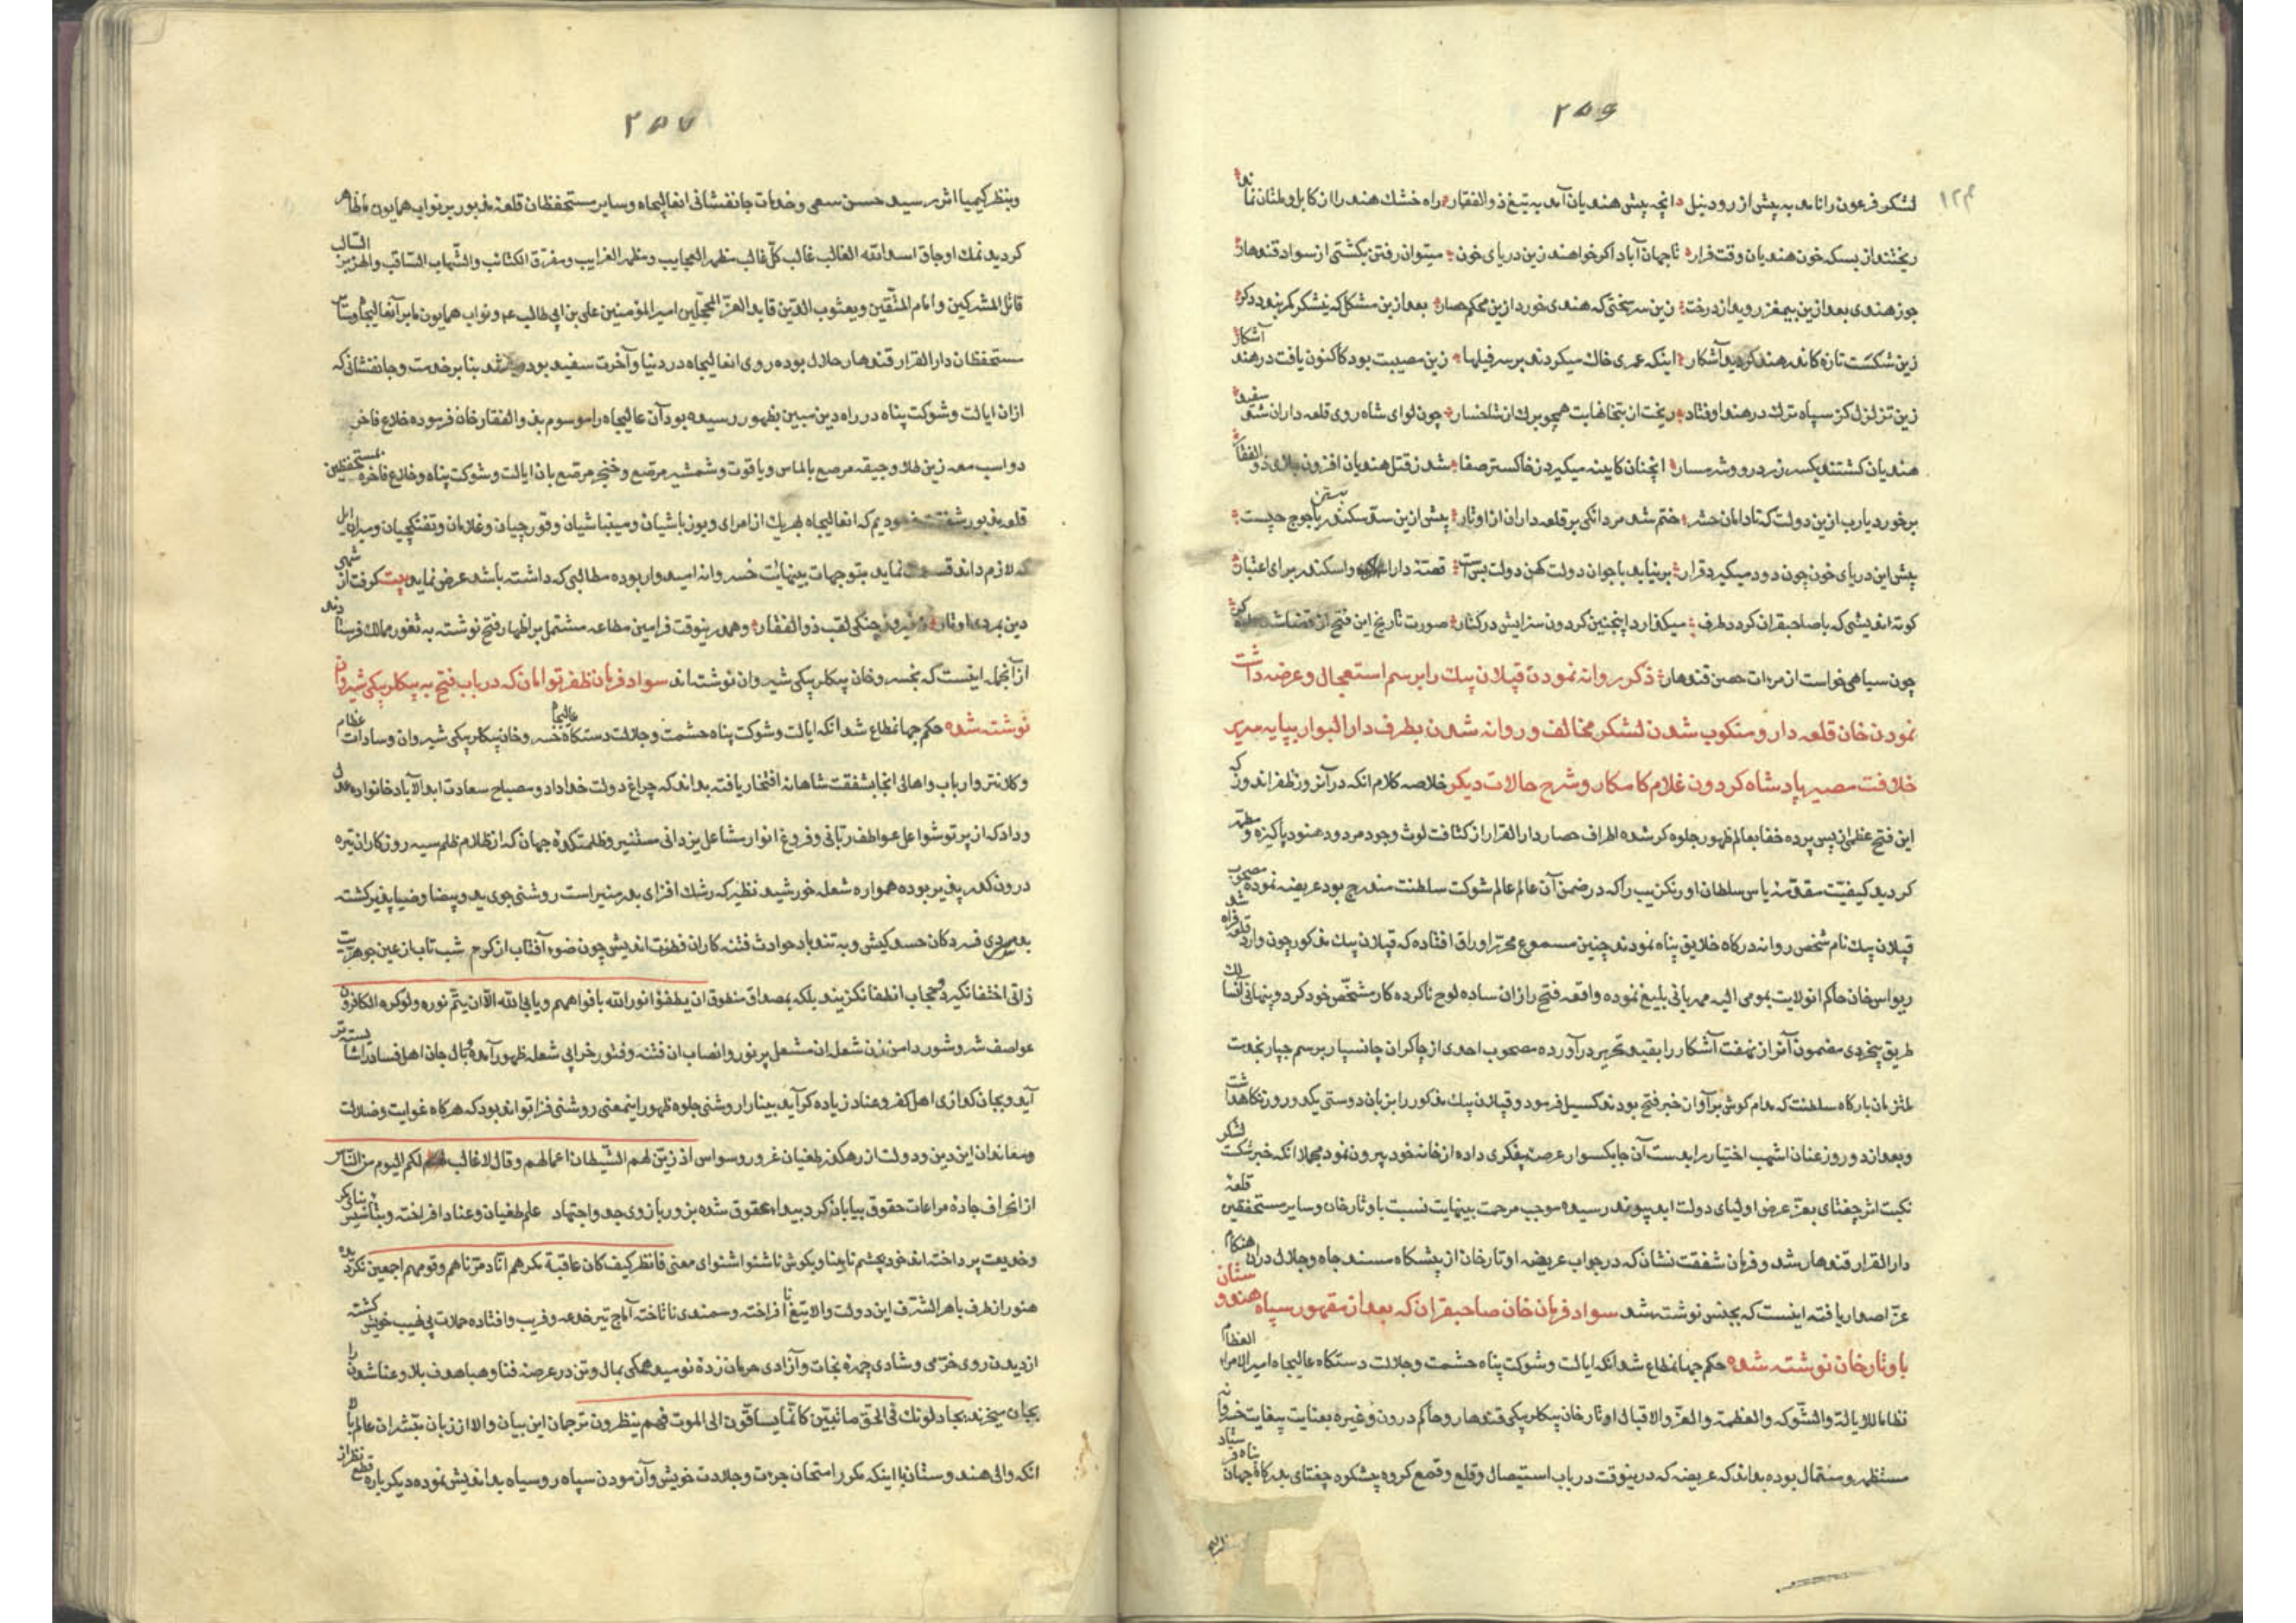 ۲۵۶
۱۲۴
لشکر فرعون را نامد به پیش از رود نیل انچه پیش هندیان آمد به تیغ ذو الفقار راه خشک هند را از کابل و ملتان نماند
ریختند از بسکه خون هندیان وقت فرار تا جهان آباد اکر خواهند زین دریای خون میتوان رفتن بکشتی از سواد قندهار
جوز هندی بعد ازین بیمغز روید از درخت زین سر سختی که هندی خورد ازین محکم حصار بعد ازین مشکل که نیشکر کمر بندد دکر
زین شکست تازه کاندر هند کردید آشکار آشکار اینکه عمری خاک میکردند بر سر فیلها زین مصیبت بود کاکنون یافت در هند
زین تزلزل کز سپاه ترک در هند اوفتاد ریخت از بتخانهایت همچو برک از شاخسار چون لوای شاه روی قلعه داران شد سفید
هندیان کشتند یکسر زرد رو و شرمسار انچنان کایینه میکیرد ز خاکستر صفا شد ز قتل هندیان افزون ذو الفقار
برخورد یارب ازین دولت که تا دامان حشر ختم شد مردانکی بر قلعه داران از اوتار پیش ازین سد سکندر بستن یاجوج چیست
پیش این دریای خون چون دود میکیرد قرار بر نیاید با جوان دولت کهن دولت بس است قصه دارا و اسکندر برای اعتبار
کوته اندیشی که با صاحبقران کردد طرف میکذارد اینچنین کردون سزایش در کنار صورت تاریخ این فتح از قضا شد
چون سیاهی خواست از مرات حصن قندهار ذکر روانه نمودن قپلان بیک را برسم استعجال و عرضه داشت
نمودن خان قلعه دار و منکوب شدن لشکر مخالف و روانه شدن بطرف دار البوار بپایه سریر
خلافت مصیر پادشاه کردون غلام کامکار و شرح حالات دیکر خلاصه کلام انکه در آنروز ظفر اندوز که
این فتح عظمی از پس پرده خفا بعالم ظهور جلوه کر شده اطراف حصار دار القرار از کثافت لوث وجود مردود هنود پاکیزه و مطهر
کردید کیفیت مقدمه یاس سلطان اورنکزیب را که در ضمن آن عالم عالم شوکت سلطنت مندرج بود عریضه نموده مصحوب
قپلان بیک نام شخص روانه درکاه خلایق پناه نمودند چنین مسموع محرر اوراق افتاده که قپلان بیک مذکور چون وارد قلعه فراه شد
ریواس خان حاکم انولایت بمومی الیه مهربانی بلیغ نموده واقعه فتح را از ان ساده لوح ناکرده کار مشخص خود کرد و پنهانی
طریق بیخردی مضمون آنراز نهفت آشکار را بقید تحریر در آورده مصحوب احدی از چاکران جانسپار برسم چپار بخدمت
ملتزمان بارکاه سلطنت که مدام کوش بر آوان خبر فتح بودند کسیل فرمود و قپلان بیک مذکور را بزبان دوستی یکدو روز نکاهداشت
و بعد از دو روز عنان اشهب اختیار را بدست آن چابکسوار عرصه بیفکری داده از خانه خود بیرون نمود مجملا انکه خبر شکست لشکر
نکبت اثر چغتای بعز عرض اولیای دولت ابد پیوند رسیده موجب مرحمت بینهایت نسبت باوتار خان و سایر مستحفظین قلعه
دار القرار قندهار شد و فرمان شفقت نشان که در جواب عریضه اوتار خان از پیشکاه مسند جاه و جلال در ان هنکام
عز اصدار یافته اینست که بجنس نوشته شد سواد فرمان خان صاحبقران که بعد از مقهور سپاه هندوستان
باوتار خان نوشته شده حکم جهانمطاع شد انکه ایالت و شوکت پناه حشمت و جلالت دستکاه عالیجاه امیر الامراء العظام
نظاما للایالة والشوکه والعظمة والعز والاقبال اوتار خان بیکلربیکی قندهار و حاکم درون و غیره بعنایت بیغایت خسروانه
مستظهر و مستمال بوده بداند که عریضه که درینوقت در باب استیصال و قلع و قمع کروه بیشکوه چغتای بدرکاه جهان پناه فرستاد
۲۵۷
و بنظر کیمیا اثر رسید حسن سعی و خدمات جانفشانی انعالیجاه و سایر مستحفظان قلعه مذبور بر نواب همایون ما ظاهر
کردید نمک اوجاق اسد الله الغالب غالب کل غالب مظهر العجایب و مظهر الغرایب و مفرق الکتائب والشهاب الثاقب والهزبر السالب
قاتل المشرکین و امام المتقین و یعسوب الدین قاید الغر المحجلین امیر المؤمنین علی بن ابی طالب ع م و نواب همایون ما بر آنعالیجاه و سایر
مستحفظان دار القرار قندهار حلال بوده روی انعالیجاه در دنیا و آخرت سفید بوده باشد بنا بر خدمت و جانفشانی که
ازان ایالت و شوکت پناه در راه دین مبین بظهور رسیده بود آن عالیجاه را موسوم بذو الفقار خان فرموده خلاع فاخر
دو اسب معه زین طلا و جیقه مرصع بالماس و یاقوت و شمشیر مرصع و خنجر مرصع بان ایالت و شوکت پناه و خلاع فاخره بمستحفظین
قلعه مذبور شفقت فرمودیم که انعالیجاه بهریک از امرای و یوز باشیان و مینباشیان و قورچیان و غلامان و تفنکچیان و سایر
که لازم داند قسمت نماید بتوجهات بینهایت خسروانه امیدوار بوده مطالبی که داشته باشد عرض نماید بیت کرفت از شهی
دین بمردی اوتار ز فیروز جنکی لقب ذو الفقار و همدرینوقت فرامین مطاعه مشتمل بر اظهار فتح نوشته به ثغور ممالک فرستادند
از آنجمله اینست که بخسرو خان بیکلربیکی شیروان نوشته اند سواد فرمان ظفر توامان که در باب فتح به بیکلربیکی شیروان
نوشته شده حکم جهانمطاع شد انکه ایالت و شوکت پناه حشمت و جلالت دستکاه عالیجاه خسرو خان بیکلربیکی شیروان و سادات عظام
و کلانتر و ارباب و اهالی انجا بشفقت شاهانه افتخار یافته بداند که چراغ دولت خداداد و مصباح سعادت ابد الآباد خانواده عدل
و داد که از پرتو شواعل عواطف ربانی و فروغ انوار مشاعل یزدانی مستنیر و ظلمتکده جهان که از ظلام ظلم سیه روزکاران تیره
درون کدر پذیر بوده همواره شعله خورشید نظیر که رشک افزای بدر منیر است روشنی جوی ید و بیضا و ضیا پذیر کشته
بدم سردی فسردکان حسد کیش و به تند باد حوادث فتنه کاران فطنت اندیش چون ضوء آفتاب از کوهر شب تاب از عین جوهریت
ذاتی اختفا نکیرد و حجاب انطفا نکزیند بلکه بمصداق منطوق ان یطفؤا نور الله بافواههم و یابی الله الا ان یتم نوره ولو کره الکافرون
عواصف شر و شور دامن زن شعله ان مشعل پر نور و انصاب ان فتنه و فتور خرابی شعله ظهور آمده وبال جان اهل فساد
آید و بجان کدازی اهل کفر و عناد زیاده کر آید بینا را روشنی جلوه ظهور اینمعنی روشنی فزا تواند بود که هرکاه غوایت و ضلالت
و معاندان این دین و دولت از رهکذر طغیان غرور و سواس اذ زین لهم الشیطان اعمالهم و قال لا غالب لکم الیوم من الناس
از انحراف جاده مراعات حقوق بیابان کرد بیداء عقوق شده بزور بازوی جد و اجتهاد علم طغیان و عناد افراخته
و خدیعت پرداخته اند خود بچشم نابینا و بکوش ناشنوا شنوای معنی فانظر کیف کان عاقبة مکرهم انا دمرناهم و قومهم اجمعین نکردیده
هنوز از طرف باهر الشرف این دولت والا تیغ نا افراخته و سمندی نا تاخته آماج تیر خدعه و فریب و افتاده حملات پی نهیب خویش کشته
از دیدن روی خرمی و شادی چهره نجات و آزادی حرمان زده نومید همکی بمال و تن در عرصه فنا و هبا هدف بلا و عنا شدن را
بجان میخرند یجادلونک فی الحق ما تبین کانما یساقون الی الموت وهم ینظرون ترجمان این بیان والا از زبان مبشران عالم بالا
انکه والی هندوستان با اینکه مکرر امتحان جرءت و جلادت خویش و آزمودن سپاه رو سیاه بد اندیش نموده دیکر باره قطع نظر از